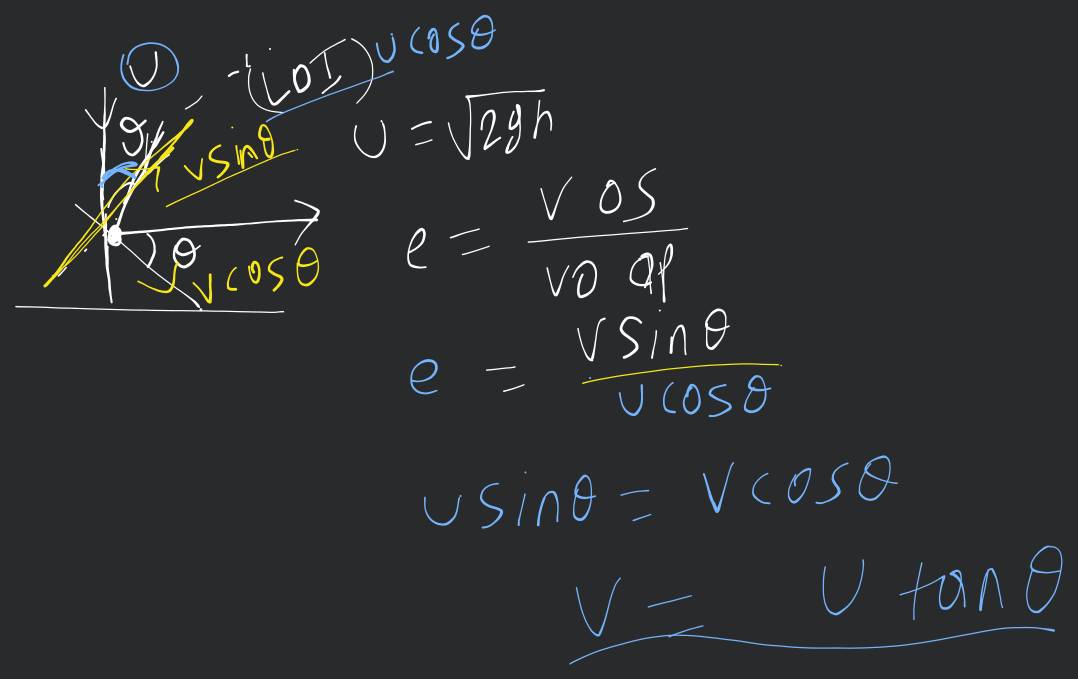 U
-(LOI) u cosθ
θ
v sinθ
U = √2gh
θ
v cosθ
e = v OS / vo ap
e = v sinθ / u cosθ
u sinθ = v cosθ
v = u tanθ